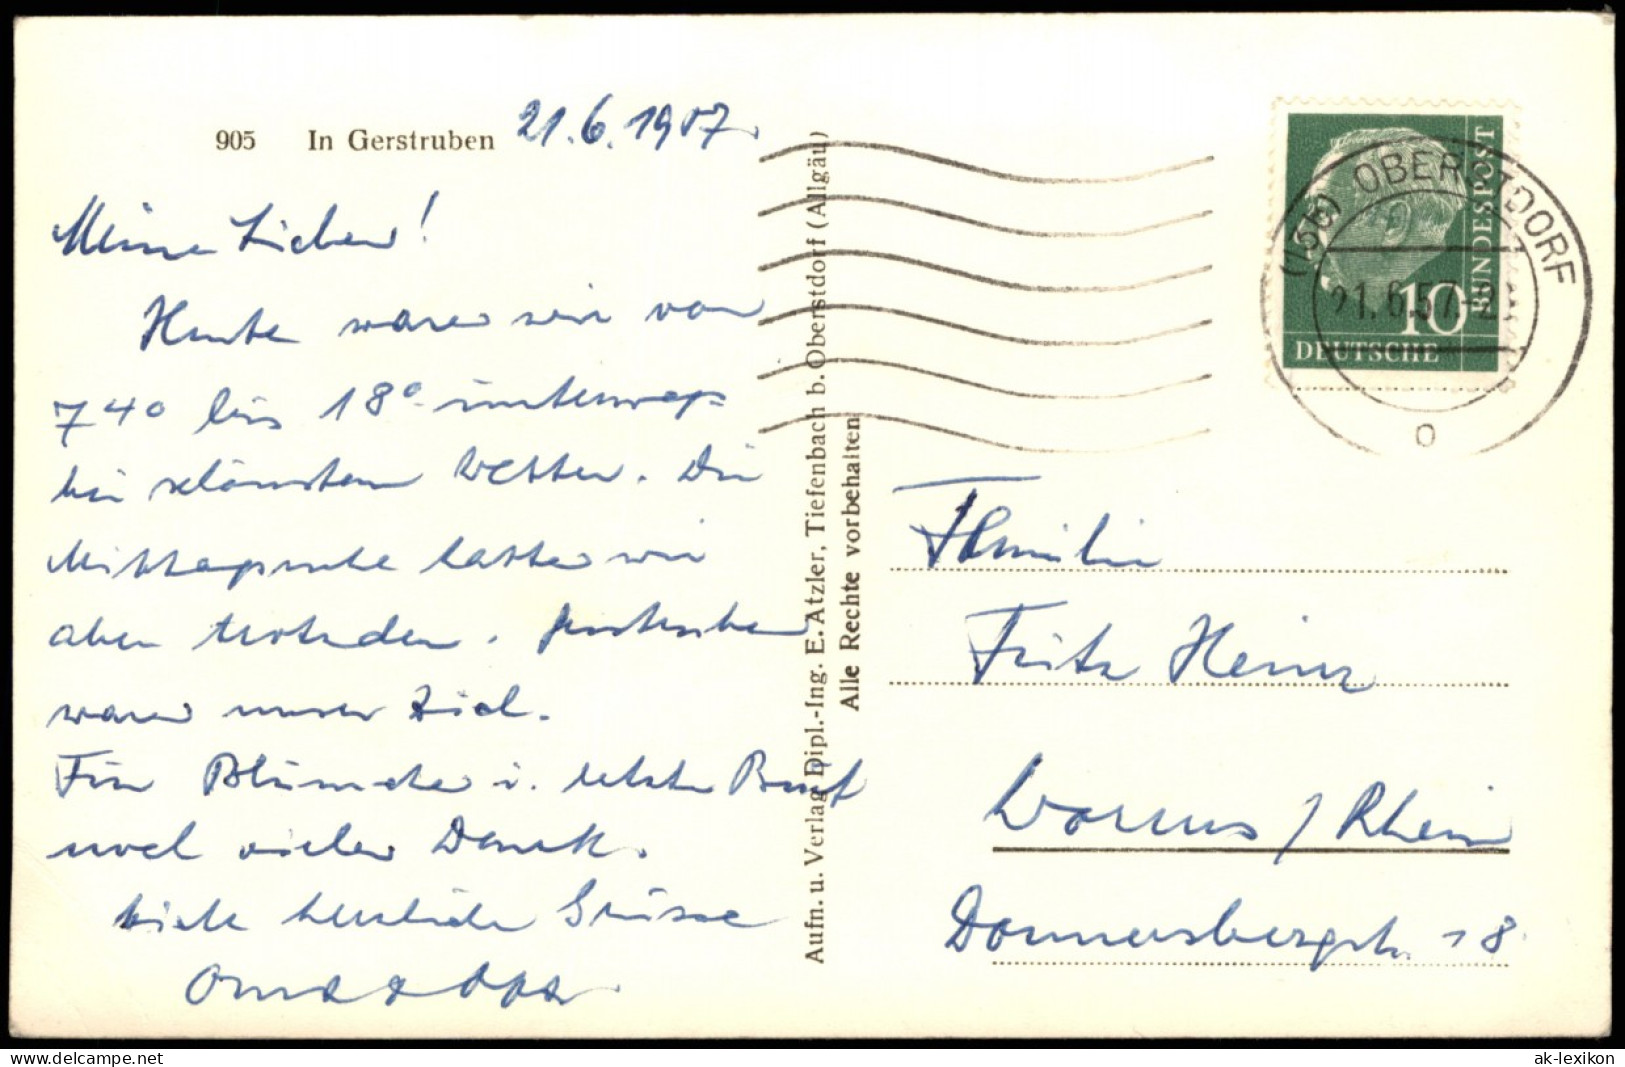 905 In Gerstruben
21.6.1957.
Meine Lieben!
Heute waren wir von
7 40 bis 18° unterwegs
bei schönstem Wetter. Die
Mittagsruhe hatten wir
aber trotzdem. Gerstruben
waren unser Ziel.
Für Blümchen u. letzten Brief
noch vielen Dank.
Viele herzliche Grüsse
Oma & Opa
Aufn. u. Verlag Dipl.-Ing. E. Atzler, Tiefenbach b. Oberstdorf (Allgäu)
Alle Rechte vorbehalten
(13b) OBERSTDORF
21.6.57.-2
o
DEUTSCHE
BUNDESPOST
10
Familie
Fritz Heinz
Worms / Rhein
Donnersbergstr. 18
www.delcampe.net
ak-lexikon